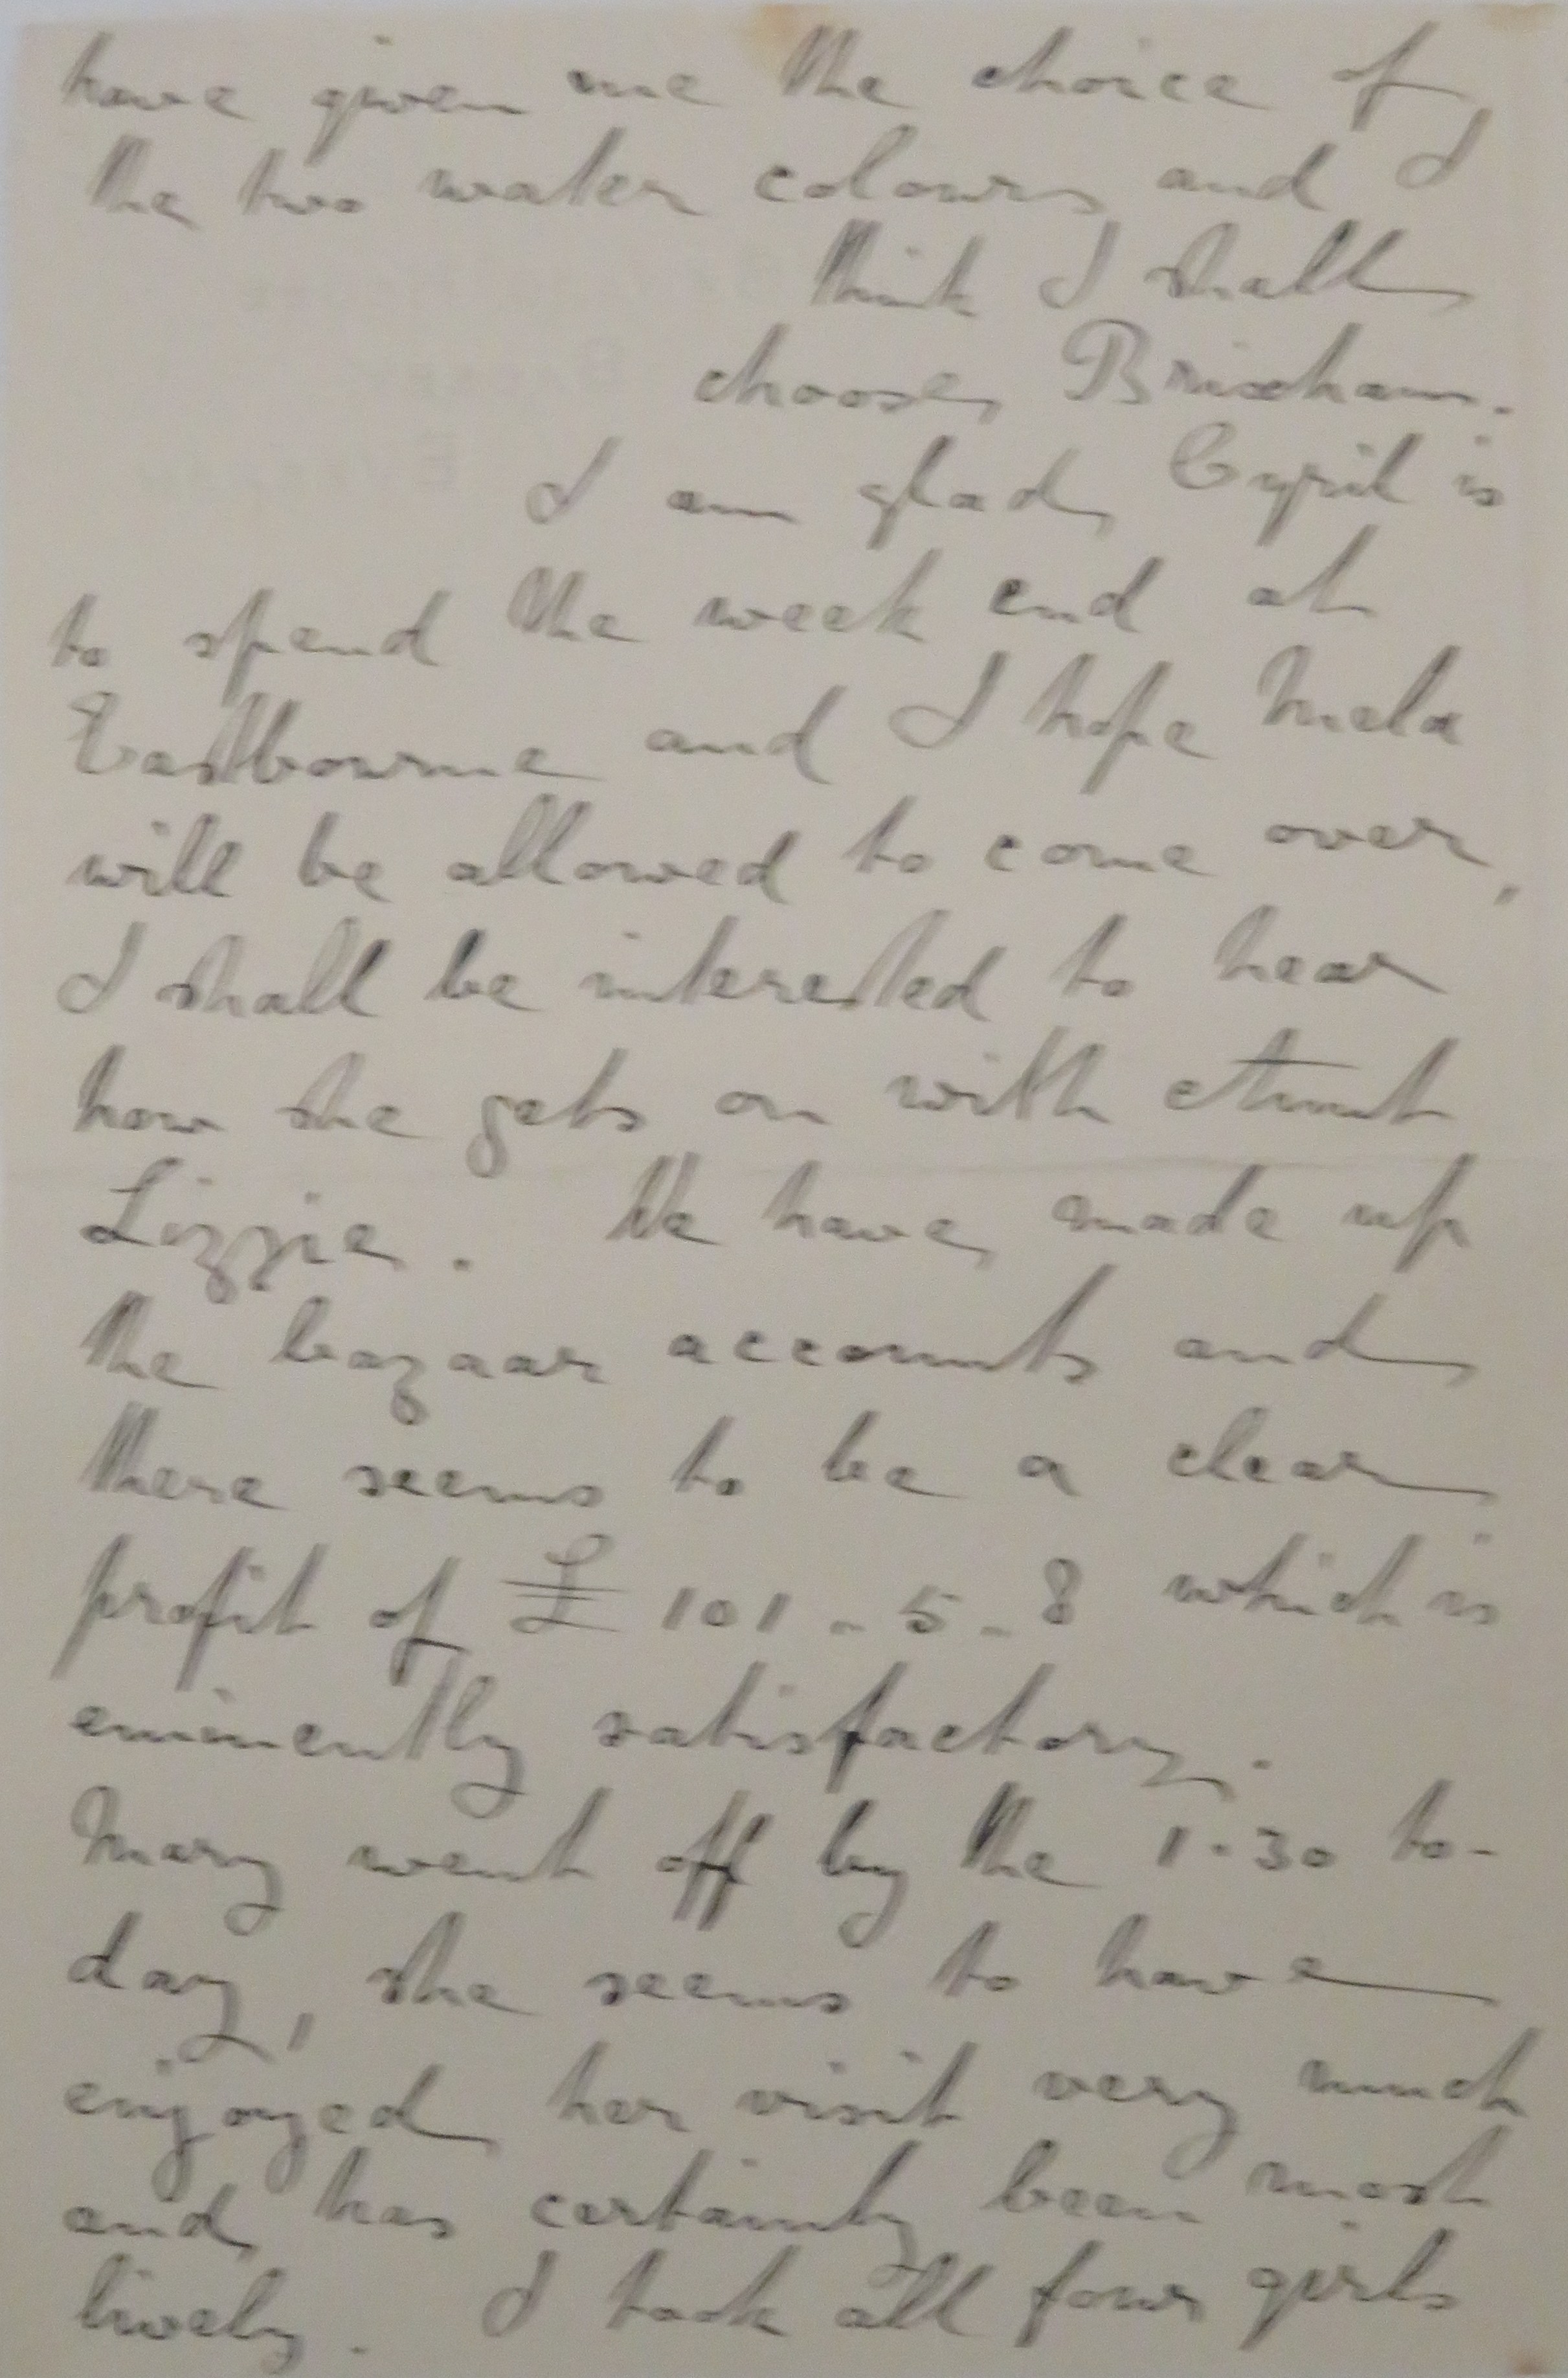 have given me the choice of
the two water colours and I
think I shall
choose Brixham.
I am glad Cyril is
to spend the week end at
Eastbourne and I hope Mela
will be allowed to come over,
I shall be interested to hear
how she gets on with Aunt
Lizzie. We have made up
the bazaar accounts and
there seems to be a clear
profit of £101-5-8 which is
eminently satisfactory.
Mary went off by the 1.30 to-
day, she seems to have
enjoyed her visit very much
and has certainly been most
lively. I took all four girls